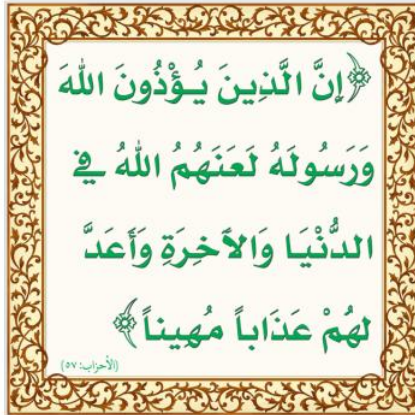 ﴿إِنَّ الَّذِينَ يُـؤْذُونَ اللهَ
وَرَسُولَهُ لَعَنَهُمُ اللهُ فِي
الدُّنْيَا وَالآخِرَةِ وَأَعَدَّ
لَهُمْ عَذَاباً مُهِيناً﴾
(الأحزاب: ٥٧)